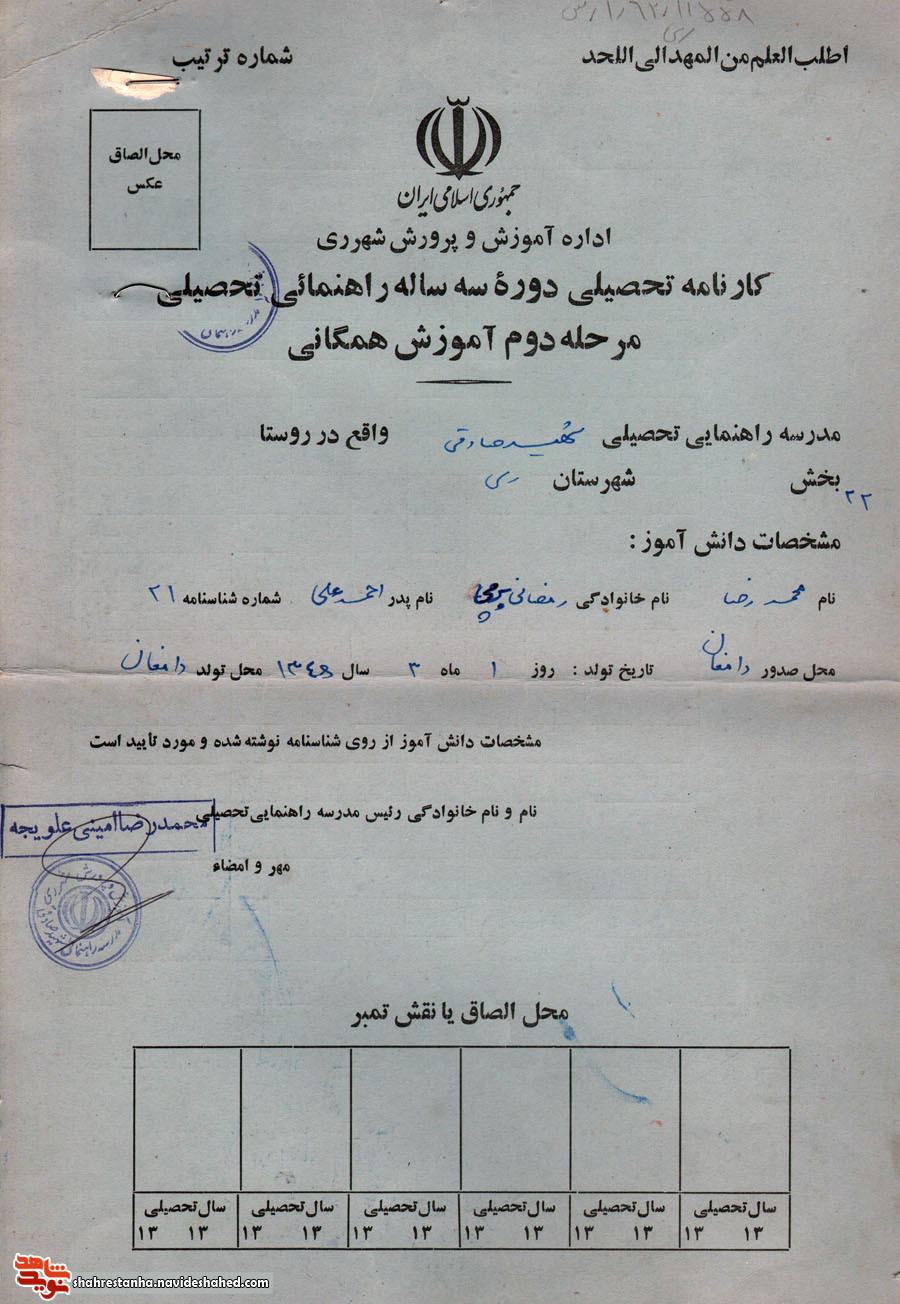 اطلب العلم من المهد الی اللحد
شماره ترتیب
محل الصاق
عکس
جمهوری اسلامی ایران
اداره آموزش و پرورش شهرری
کارنامه تحصیلی دورهٔ سه ساله راهنمائی تحصیلی
مرحله دوم آموزش همگانی
مدرسه راهنمایی تحصیلی شهید صادقی واقع در روستا
بخش شهرستان ری
۲۲
مشخصات دانش آموز :
نام محمد رضا نام خانوادگی رمضانی نام پدر احمد علی شماره شناسنامه ۲۱
محل صدور دامغان تاریخ تولد : روز ۱ ماه ۳ سال محل تولد دامغان
مشخصات دانش آموز از روی شناسنامه نوشته شده و مورد تأیید است
نام و نام خانوادگی رئیس مدرسه راهنمایی تحصیلی
محمدرضا امینی علویجه
مهر و امضاء
محل الصاق یا نقش تمبر
سال تحصیلی سال تحصیلی سال تحصیلی سال تحصیلی سال تحصیلی سال تحصیلی
۱۳ ۱۳ ۱۳ ۱۳ ۱۳ ۱۳ ۱۳ ۱۳ ۱۳ ۱۳ ۱۳ ۱۳
نوید شاهد
shahrestanha.navideshahed.com